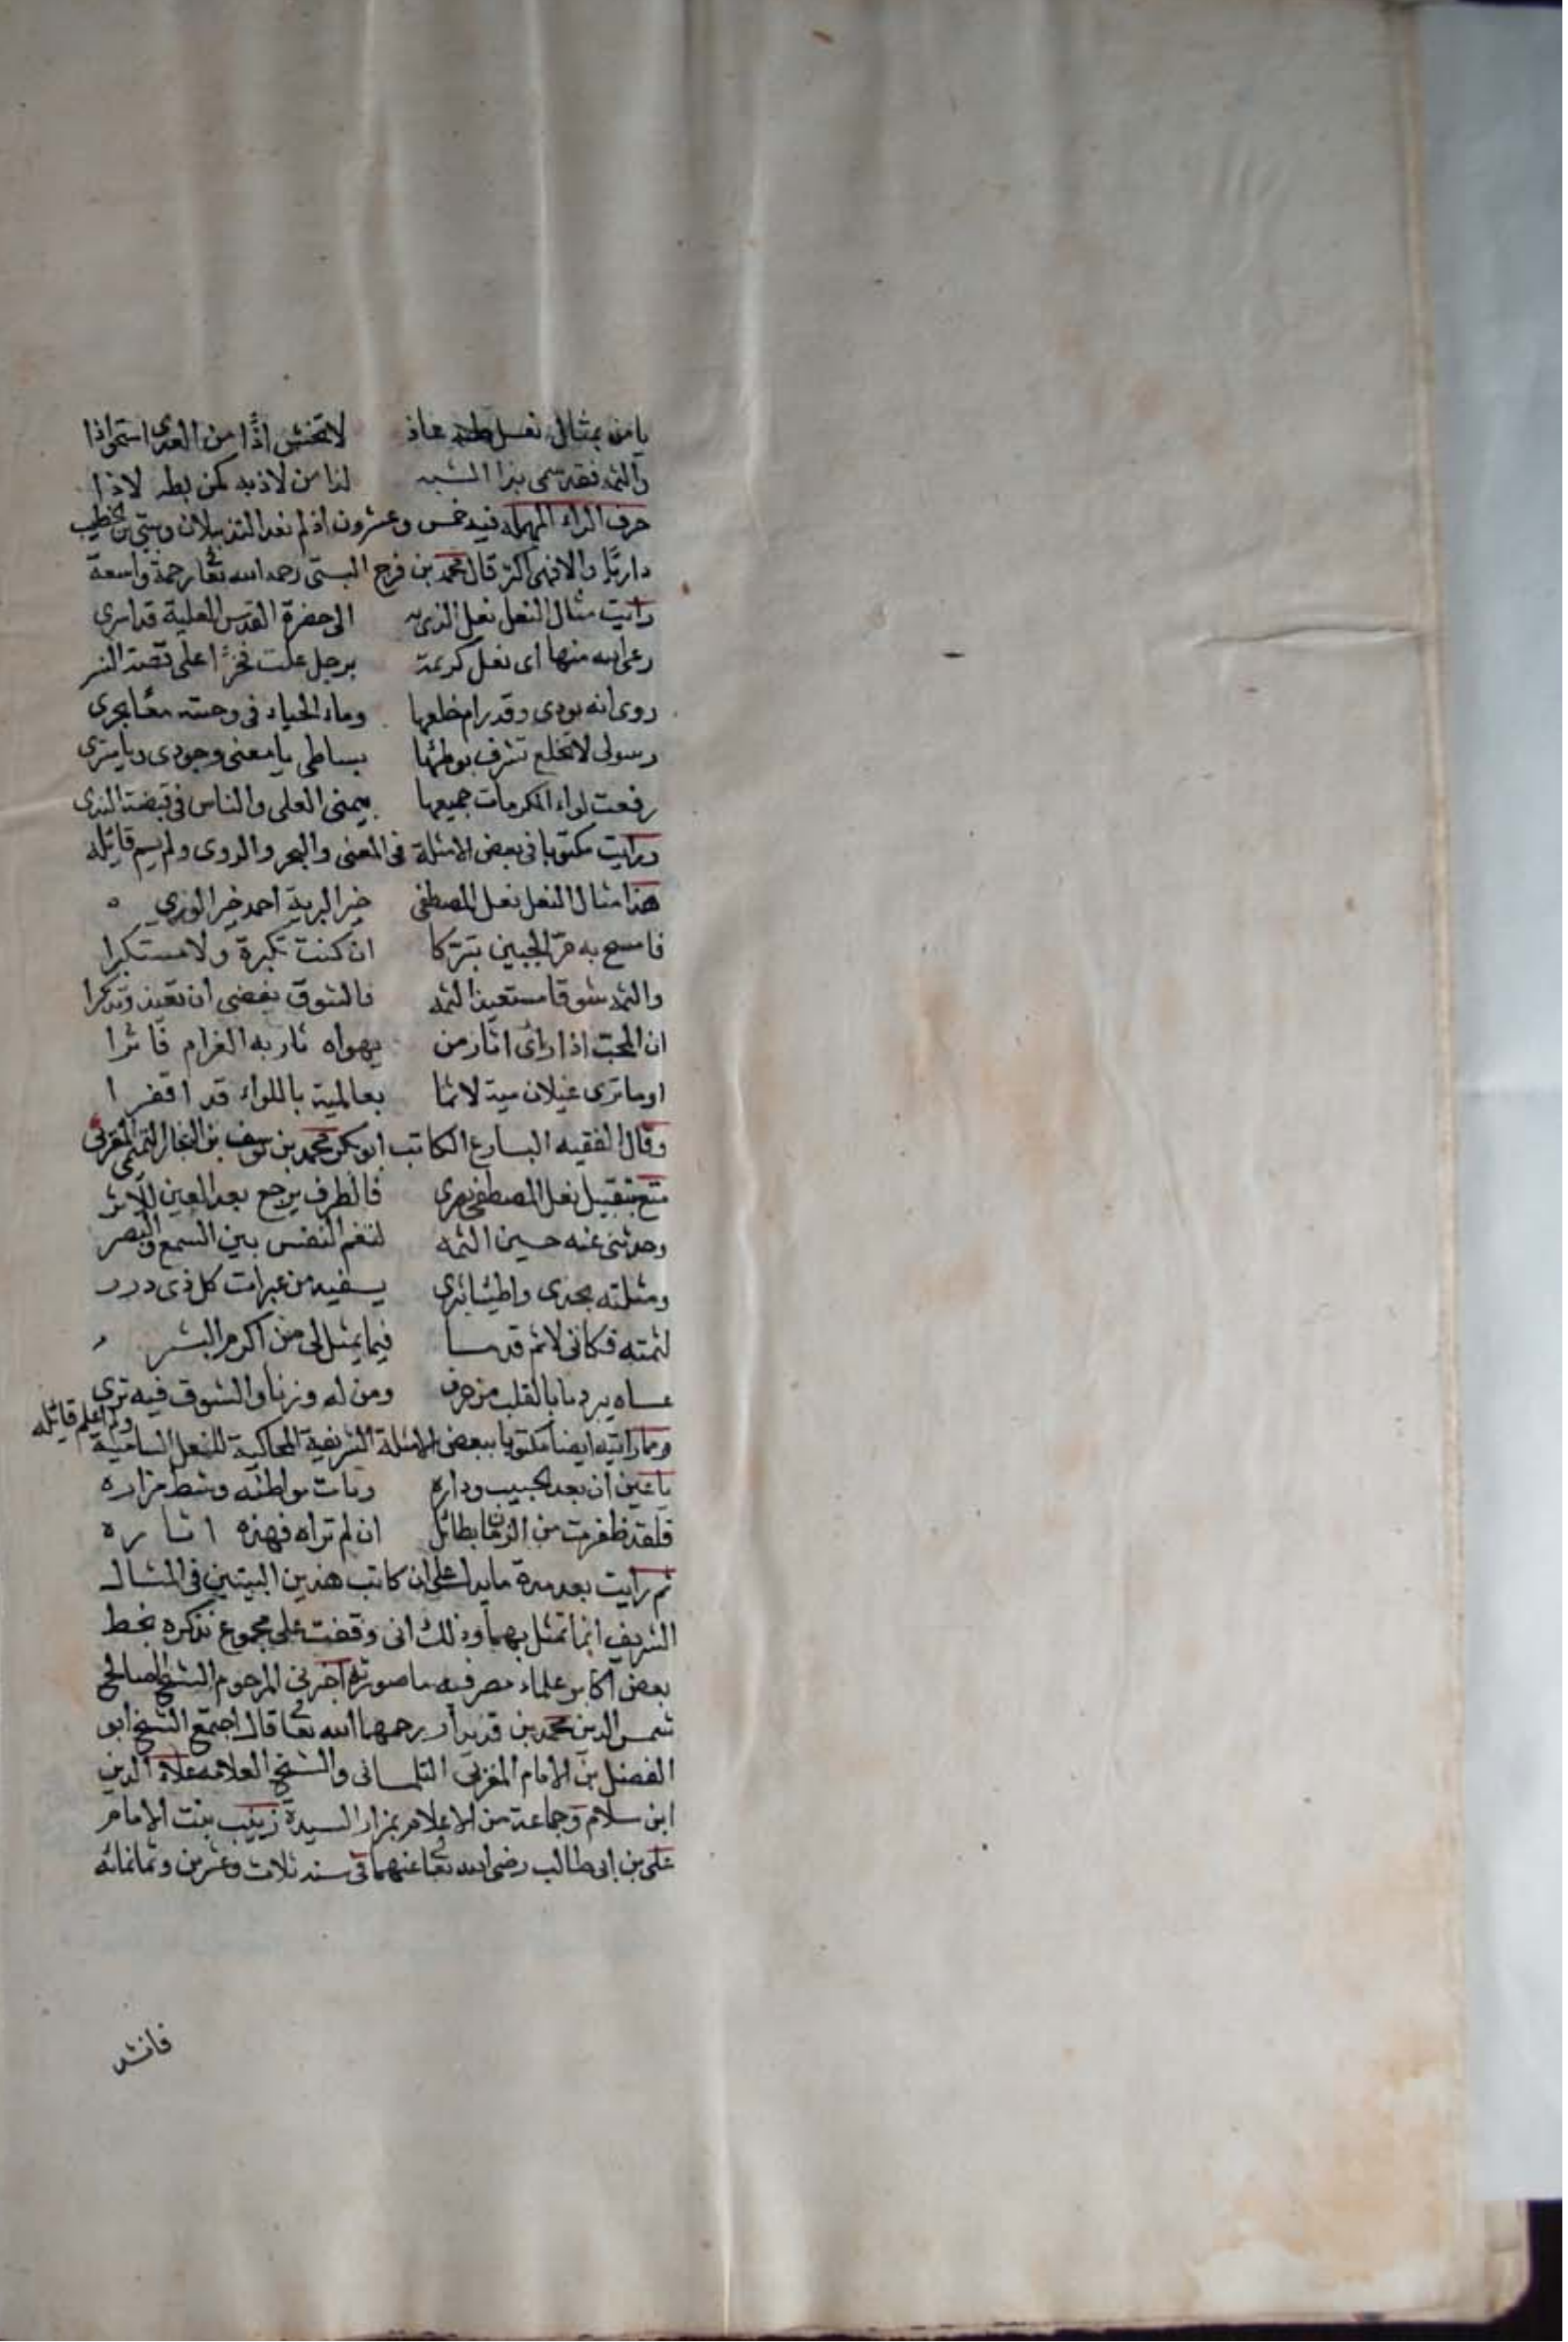 يا من بمثال نعل طه عاذ لا تخش اذًا من العدى استحواذا
والثمه فقد سمى بذا الشبه لنا من لاذ به كمن بطه لاذا
حرف الراء المهمله فيه خمس وعشرون اذ لم نعد التذييلان وبيتي بن الخطيب
داريّا والا فهى اكثر قال محمد بن فرج البستى رحمه الله تعا رحمة واسعة
رايت مثال النعل نعل الذى به الى حضرة القدس العلية قد اسرى
رعى الله منها اى نعل كريمة برجل علت فخرًا على قمة النسر
روى انه نودى وقد رام خلعها وماء الحياء فى وجنته معًا يجرى
رسولى لا تخلع تشرف بوطئها بساطى يا معنى وجودى ويا سرى
رفعت لواء المكرمات جميعها بيمنى العلى والناس فى قبضة الندى
ورايت مكتوبا فى بعض الامثلة فى المعنى والبحر والروى ولم يسم قائله
هذا مثال النعل نعل المصطفى خير البرية احمد خير الورى
فامسح به حر الجبين تبركا ان كنت تكبره ولا مستكبرا
والثمه شوقا مستعيذا لثمه فالشوق يقضى ان تعيذ وتذكرا
ان المحب اذا راى اثار من يهواه ثار به الغرام فاثرا
اوما ترى غيلان مية لاثما بعالمية باللواء قد اقفرا
وقال الفقيه البارع الكاتب ابو بكر محمد بن يوسف بن النجار التميمى المغربى
متع بتقبيل نعل المصطفى بصرى فالطرف يرجع بعد العين للاثر
وحدثنى عنه حسين الثمه لتنعم النفس بين السمع والبصر
ومثلته بخدى واطئا بثرى يسقيه من عبرات كل ذى درر
لثمته فكانى لاثم قدما فيما يمثل لى من اكرم البشر
عساه يبرد ما بالقلب من حرق ومن له وزنا والشوق فيه ترى
ومما رايته ايضا مكتوبا ببعض الامثلة الشريفة المحاكية للنعل السامية ولم اعلم قائله
يا عين ان بعد الحبيب وداره ونات مواطنه وشط مزاره
فلقد ظفرت من الزمان بطائل ان لم تراه فهذه اثاره
ثم رايت بعد مدة ما يدل على ان كاتب هذين البيتين فى المثال
الشريف انما تمثل بهما وذلك انى وقفت على مجموع تذكره بخط
بعض اكابر علماء مصر فيه ما صورته اخبرنى المرحوم الشيخ الصالح
شمس الدين محمد بن قديدار رحمهما الله تعا قال اجتمع الشيخ ابو
الفضل بن الامام المغربى التلمسانى والشيخ العلامه علاء الدين
ابن سلام وجماعة من الاعلام بمزار السيدة زينب بنت الامام
على بن ابى طالب رضى الله تعا عنهما فى سنه ثلاث وعشرين وثمانمائه
فانشد